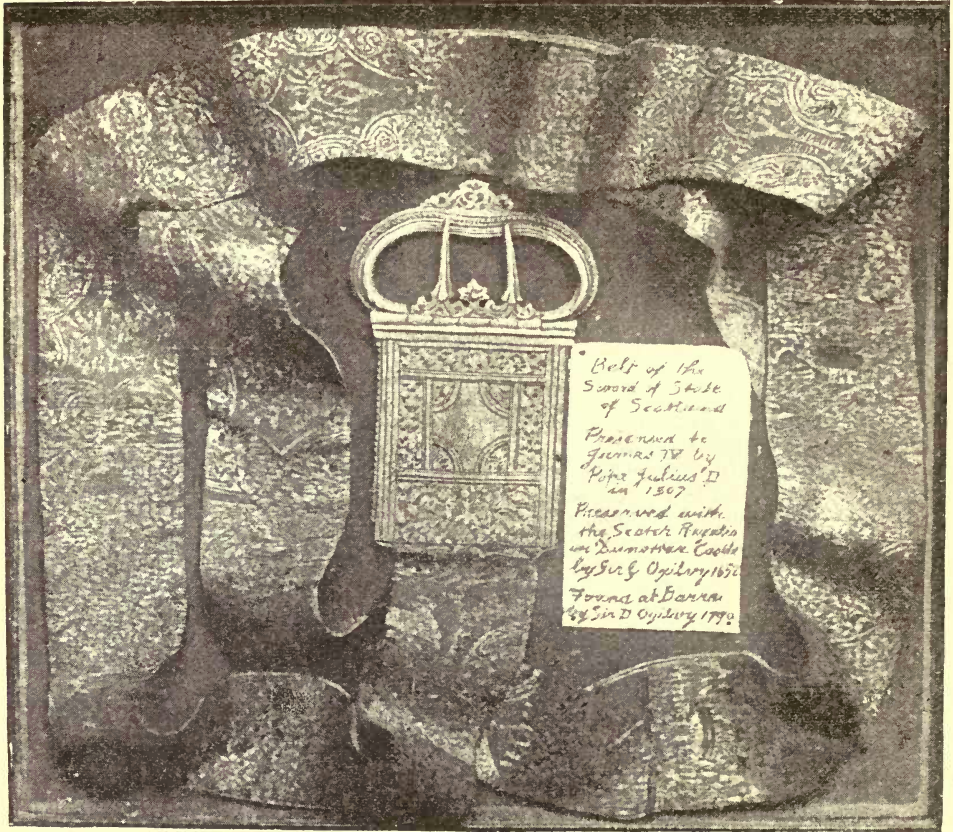 Belt of the
Sword of State
of Scotland
Presented to
James IV by
Pope Julius II
in 1507
Preserved with
the Scotch Regalia
in Dunottar Castle
by Sir G Ogilvy 1652
Found at Barras
by Sir D Ogilvy 1790